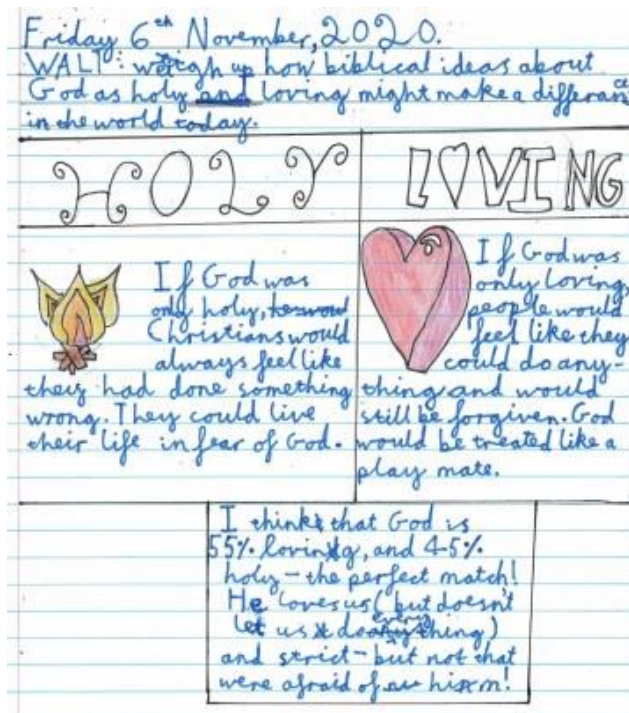 Friday 6th November, 2020.
WALT: weigh up how biblical ideas about
God as holy and loving might make a differance
in the world today.
HOLY
LOVING
If God was
only holy,
Christians would
always feel like
they had done something
wrong. They could live
their life in fear of God.
If God was
only loving,
people would
feel like they
could do any-
thing and would
still be forgiven. God
would be treated like a
play mate.
I think that God is
55% loving, and 45%
holy - the perfect match!
He loves us (but doesn't
let us do everything)
and strict - but not that
were afraid of him!